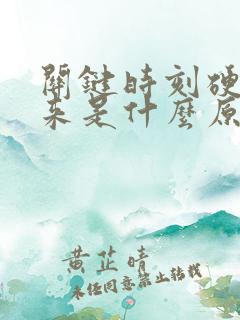 關鍵時刻硬
來是什麼原
黃芷晴
未經同意禁止轉載